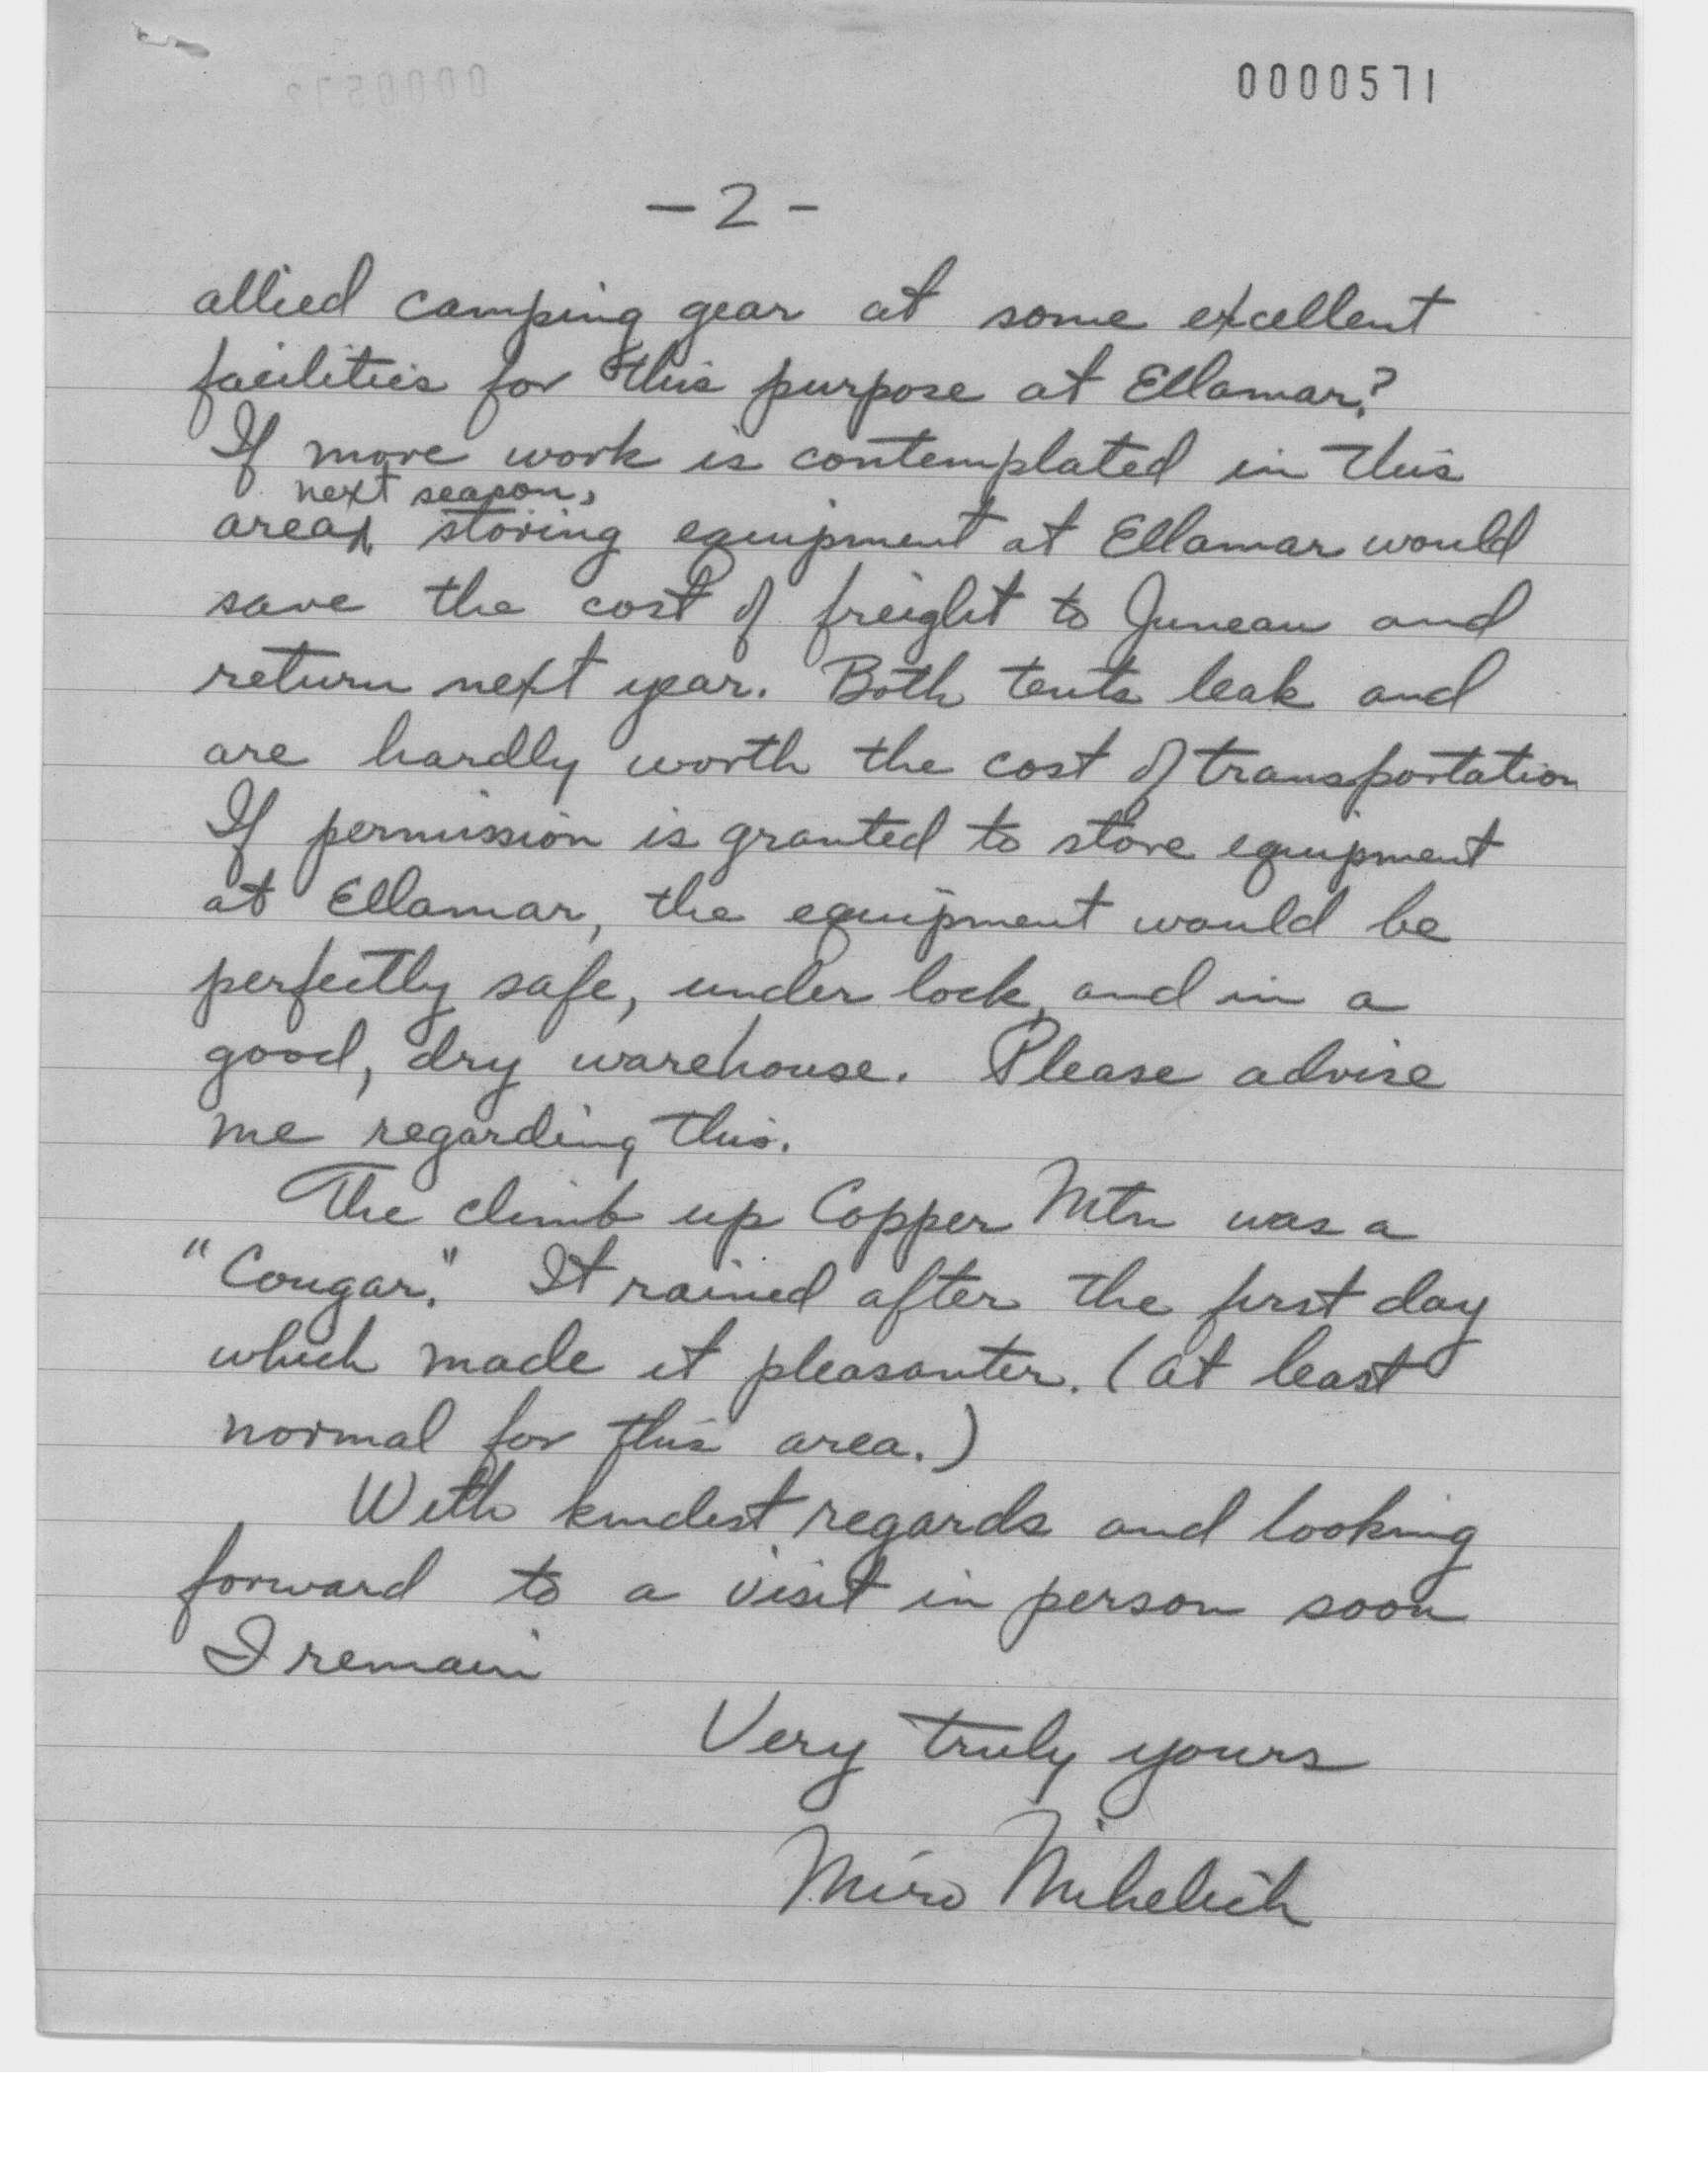 0000571
0000572
- 2 -
allied camping gear at some excellent
facilities for this purpose at Ellamar?
If more work is contemplated in this
next season,
area, storing equipment at Ellamar would
save the cost of freight to Juneau and
return next year. Both tents leak and
are hardly worth the cost of transportation
If permission is granted to store equipment
at Ellamar, the equipment would be
perfectly safe, under lock, and in a
good, dry warehouse. Please advise
me regarding this.
The climb up Copper Mtn was a
"Cougar." It rained after the first day
which made it pleasanter. (at least
normal for this area.)
With kindest regards and looking
forward to a visit in person soon
I remain
Very truly yours
Miro Mihelich